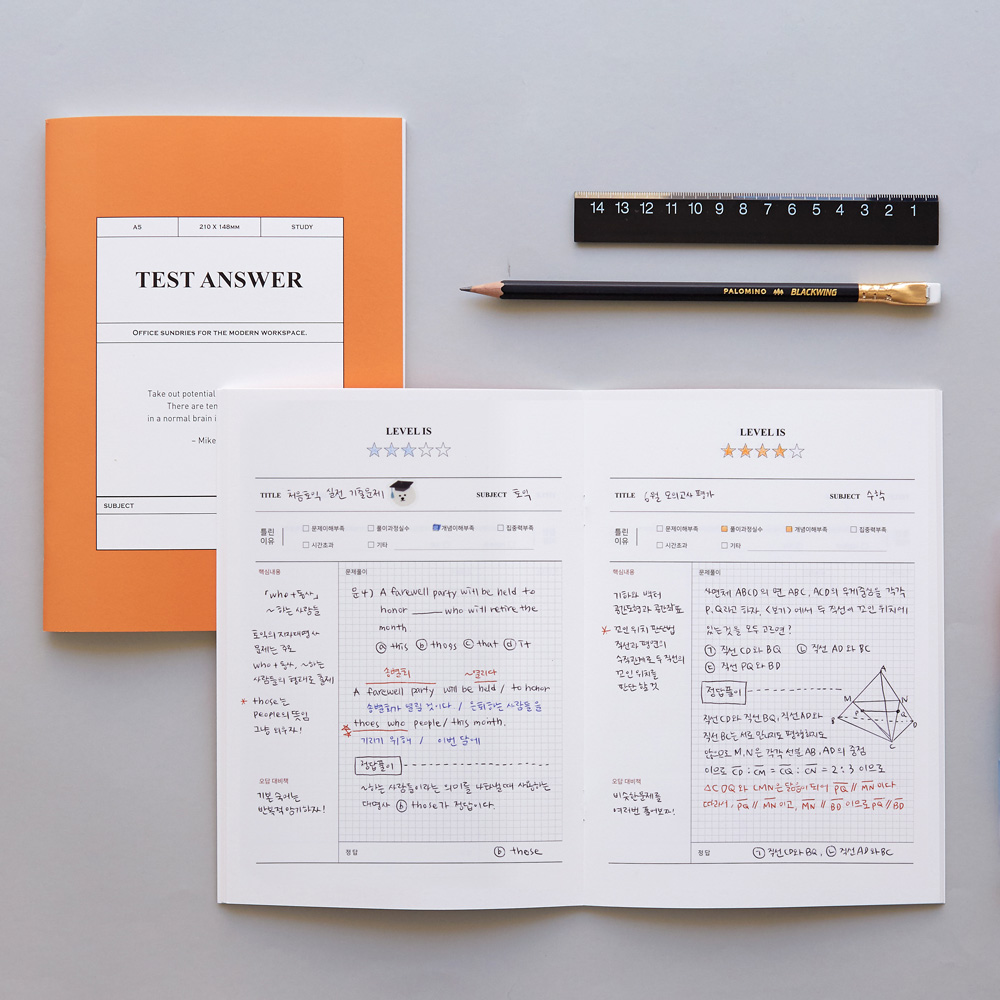 A5 210 X 148MM STUDY
TEST ANSWER
OFFICE SUNDRIES FOR THE MODERN WORKSPACE.
Take out potential
There are
in a normal brain
~ Mike
SUBJECT
14 13 12 11 10 9 8 7 6 5 4 3 2 1
PALOMINO BLACKWING
LEVEL IS
TITLE 처음토익 실전 기출문제 SUBJECT 토익
틀린
이유
문제이해부족 풀이과정실수 개념이해부족 집중력부족
시간초과 기타
핵심내용
「who+동사」
~하는 사람들
토익의 지시대명사
문제는 주로
who+동사, ~하는
사람들의 형태로 출제
* those는
people의 뜻임
그냥 외우자!
오답 대비책
기본 숙어는
반복적 암기하자!
문제풀이
문4) A farewell party will be held to
honor ____ who will retire the
month
ⓐ this ⓑ thogs ⓒ that ⓓ it
송별회 ~열리다
A farewell party will be held / to honor
송별회가 열릴 것이다 / 은퇴하는 사람들을
thoes who people / this month.
기리기 위해 / 이번 달에
정답풀이
~하는 사람들이라는 의미를 나타낼때 사용하는
대명사 ⓑ those가 정답이다.
정답 ⓑ those
LEVEL IS
TITLE 6월 모의고사 평가 SUBJECT 수학
틀린
이유
문제이해부족 풀이과정실수 개념이해부족 집중력부족
시간초과 기타
핵심내용
기하와 벡터
공간도형과 공간좌표
* 꼬인 위치 판단법
직선과 평면의
수직관계로 두 직선의
꼬인 위치를
판단할 것
오답 대비책
비슷한문제를
여러번 풀어보자!
문제풀이
사면체 ABCD의 면 ABC, ACD의 무게중심을 각각
P, Q라고 하자. <보기>에서 두 직선이 꼬인 위치에
있는 것을 모두 고르면?
㉠ 직선 CD와 BQ ㉡ 직선 AD와 BC
㉢ 직선 PQ와 BD
정답풀이
A
M N
P Q
B D
C
직선CD와 직선BQ, 직선AD와
직선BC는 서로 만나지도 평행하지도
않으므로 M, N은 각각 선분 AB, AD의 중점
이므로 CD : CM = CQ : CN = 2 : 3 이므로
△CDQ와 CMN은 닮음이 되어 PQ // MN이다
따라서, PQ // MN이고, MN // BD 이므로 PQ // BD
정답 ㉠ 직선CD와BQ, ㉡ 직선AD와BC